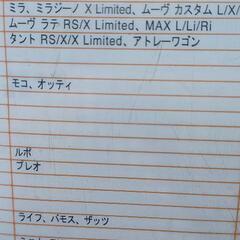 ミラ、ミラジーノ X Limited、ムーヴ カスタム L/X/
ムーヴ ラテ RS/X Limited、MAX L/Li/Ri
タント RS/X/X Limited、アトレーワゴン
モコ、オッティ
ルポ
プレオ
ライフ、バモス、ザッツ